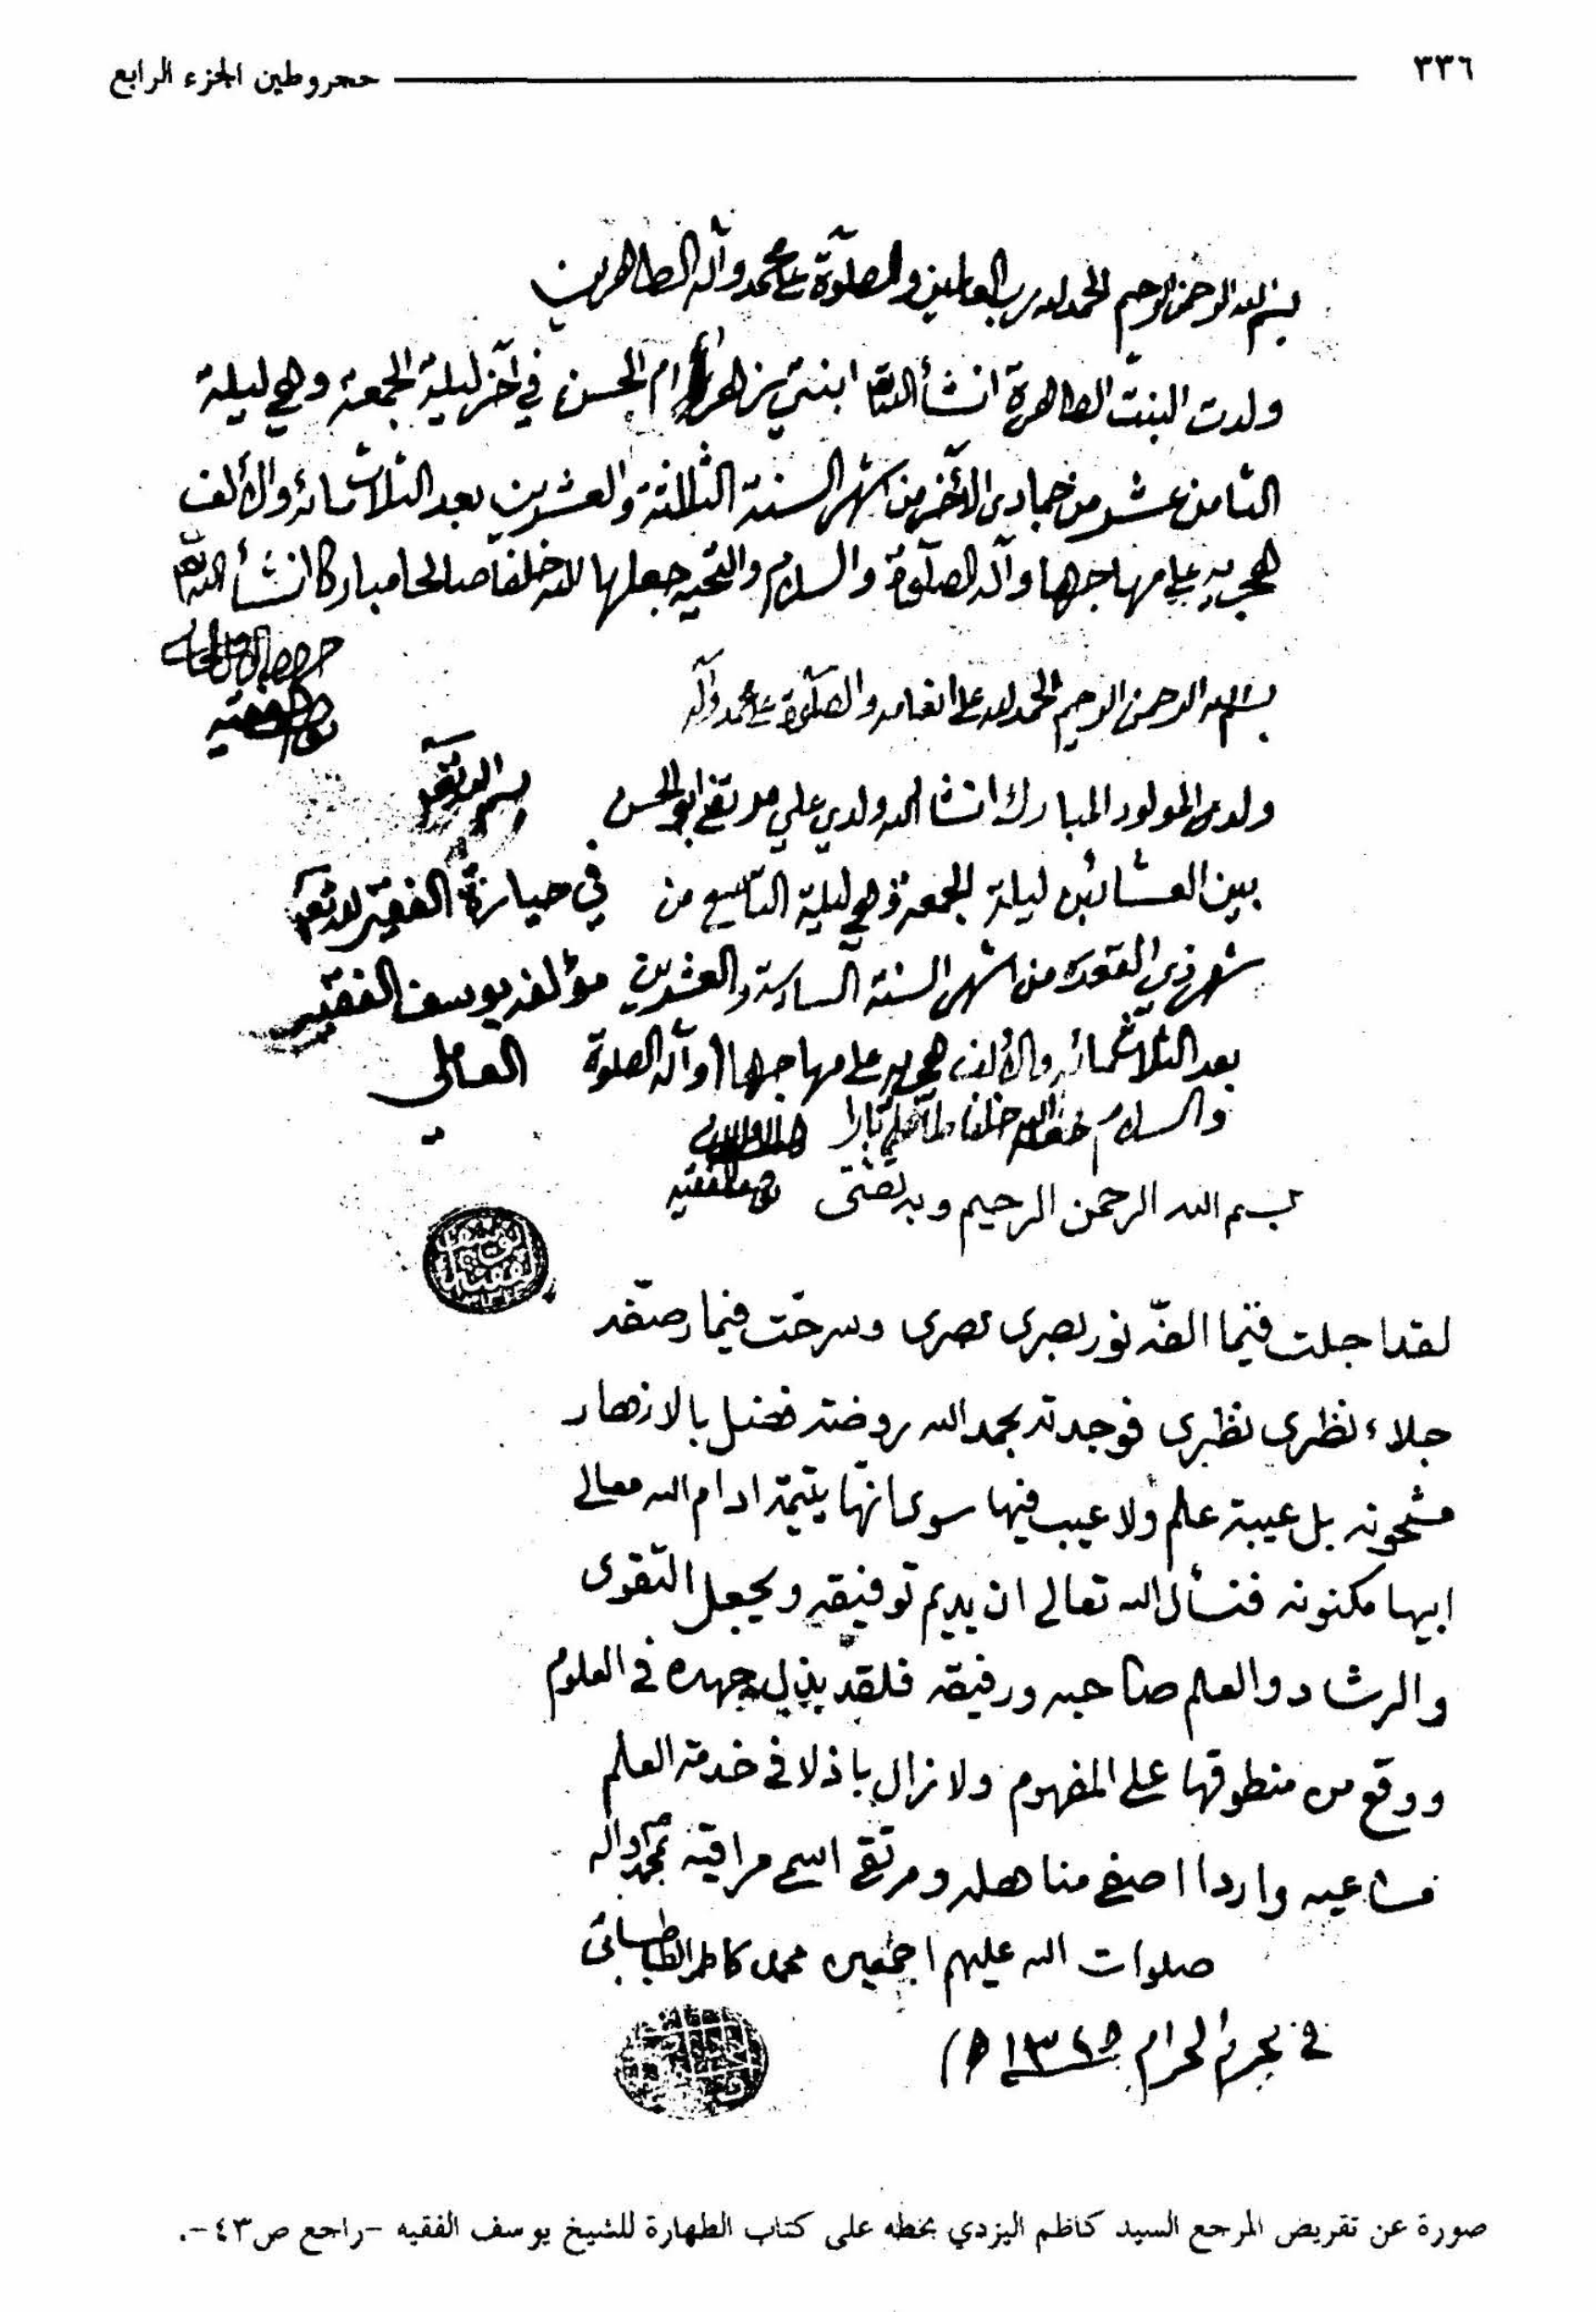 ٣٣٦
حجر وطين الجزء الرابع
بسم الله الرحمن الرحيم الحمد لله رب العالمين والصلوة على محمد وآله الطاهرين
ولدت البنت الطاهرة انشأ الله ابنتي زهراء ام الحسن في آخر ليلة الجمعة وهي ليلة
الثامن عشر من جمادى الآخر من شهر السنة الثلاثة والعشرين بعد الثلاث مائة والألف
هجريه على مهاجرها وآله الصلوة والسلام والتحيه جعلها الله خلفا صالحا مباركا انشأ الله
بسم الله الرحمن الرحيم الحمد لله على انعامه والصلوة على محمد وآله
ولد المولود المبارك انشا الله ولدي علي مرتضى ابو الحسن
بين العشائين ليلة الجمعة وهي ليلة التاسع من
شهر ذي القعدة من شهر السنة السادسة والعشرين
بعد الثلاثمائة والألف هجريه على مهاجرها وآله الصلوة
والسلام جعله الله خلفا
بسم الله
في حيازة الفقير لله
مؤلفه يوسف الفقيه
العاملي
بسم الله الرحمن الرحيم وبه ثقتى
لقد اجلت فيما الفه نور بصرى بصرى وسرحت فيما رصفه
جلاء نظرى نظرى فوجدته بحمد الله روضة فضل بالازهار
مشحونه بل عيبة علم ولا عيب فيها سوى انها يتيمة ادام الله معالى
ابيها مكنونه فنسأل الله تعالى ان يديم توفيقه ويجعل التقوى
والرشاد والعلم صاحبه ورفيقه فلقد بذل جهده في العلوم
ووقع من منطوقها على المفهوم ولا زال باذلا في خدمة العلم
مساعيه واردا اصفى مناهله ومرتقى اسمى مراقيه بمحمد وآله
صلوات الله عليهم اجمعين محمد كاظم الطباطبائى
في محرم الحرام
صورة عن تقريض المرجع السيد كاظم اليزدي بخطه على كتاب الطهارة للشيخ يوسف الفقيه -راجع ص٤٣-.